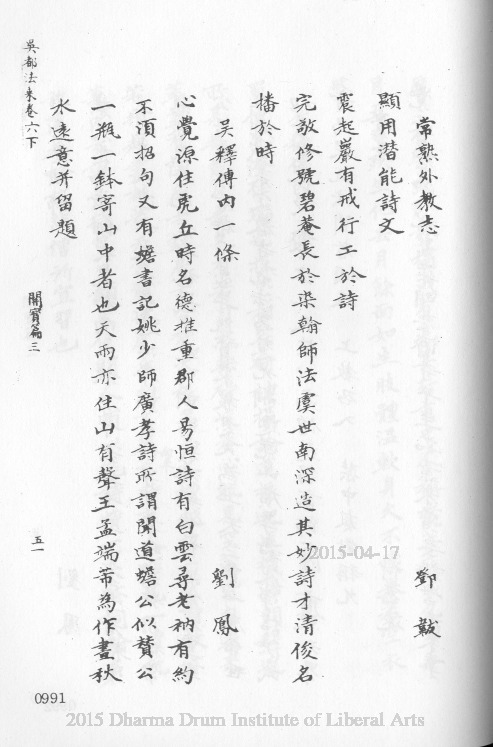 常熟外教志 鄧韍
顯用潜能詩文
震起嚴有戒行工於詩
完敬修號碧菴長於染翰師法虞世南深造其妙詩才清俊名
播於時
吳釋傳內一條 劉鳳
心覺源住虎丘時名德推重郡人易恒詩有白雲尋老衲有約
不須招句又有蟾書記姚少師廣孝詩所謂聞道蟾公似贊公
一瓶一鉢寄山中者也天雨亦住山有聲王孟端芾為作畫秋
水遠意并留題
吳都法乘卷六下
開賢篇三
五一
0991
2015-04-17
2015 Dharma Drum Institute of Liberal Arts